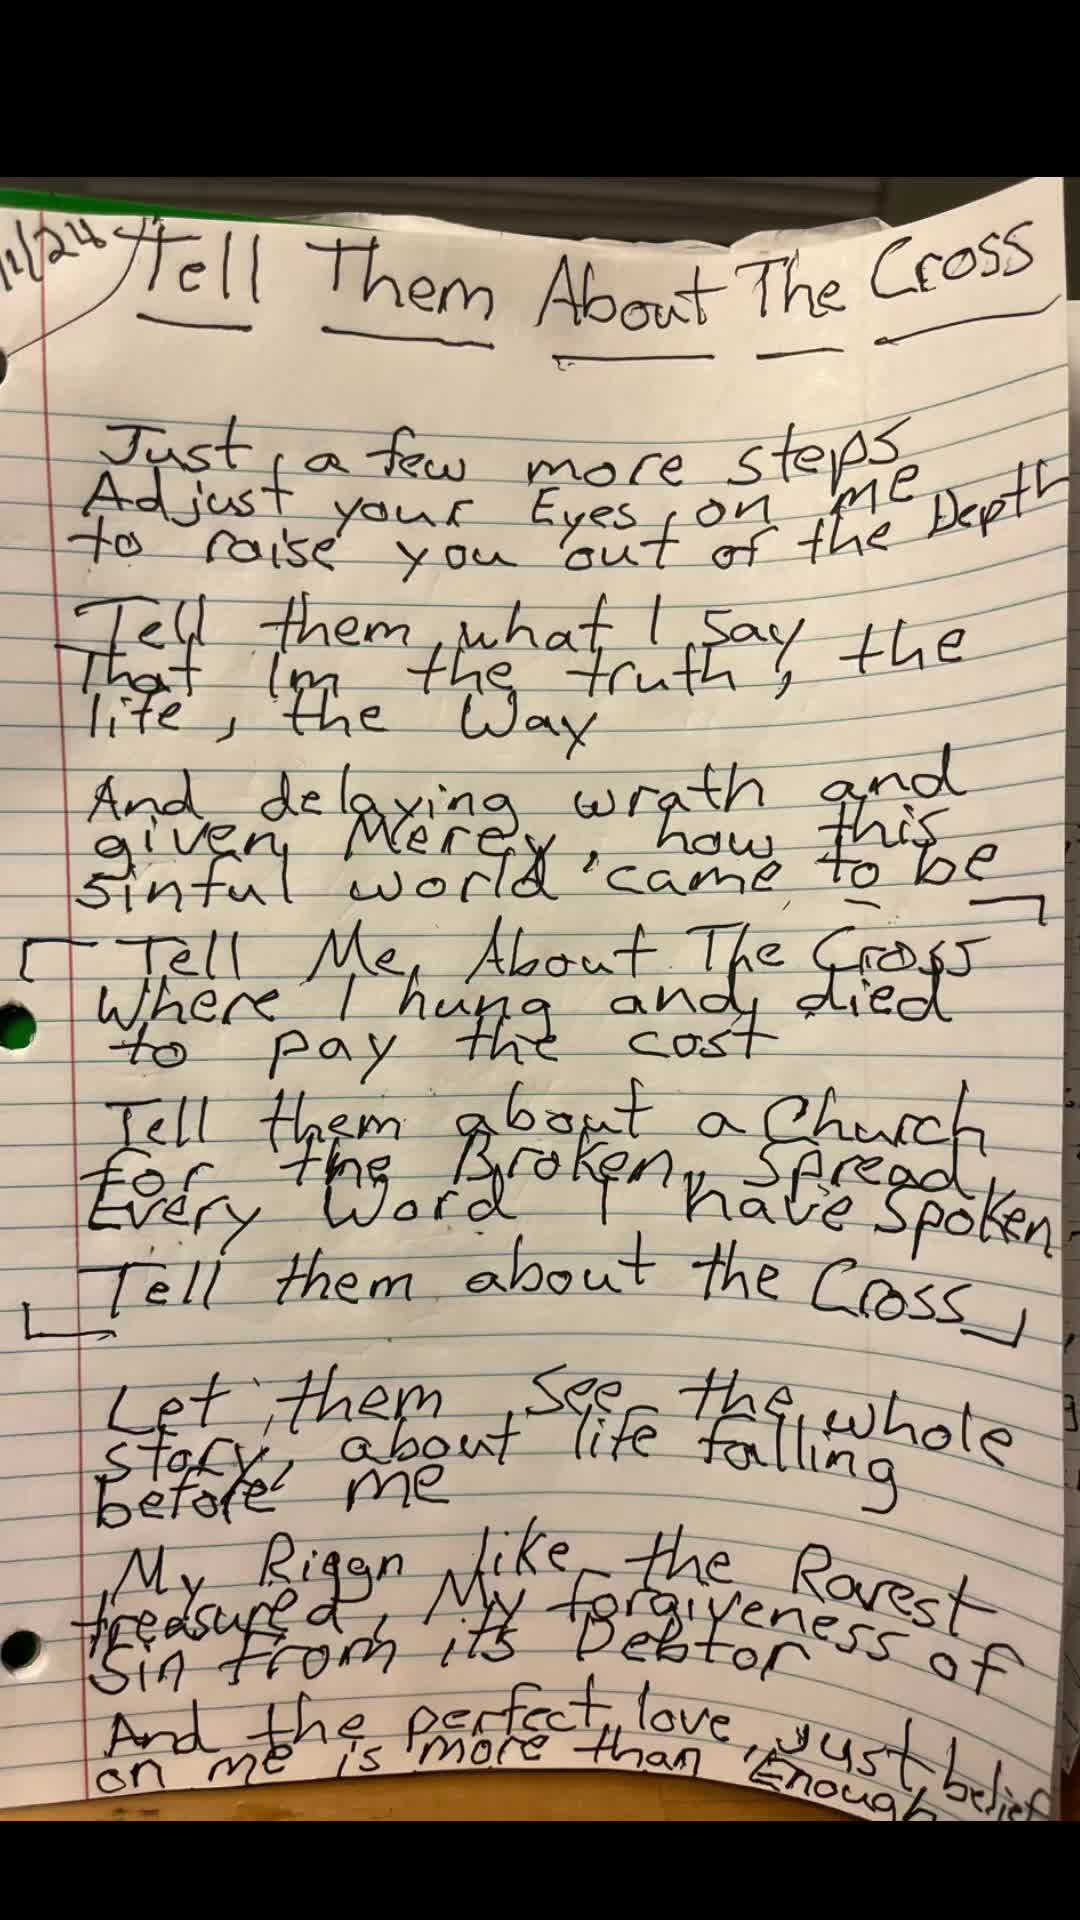 Tell Them About The Cross
Just a few more steps
Adjust your Eyes on me
to raise you out of the Depth
Tell them what I say
That Im the truth, the
life, the Way
And delaying wrath and
given Mercy, how this
sinful world came to be
Tell Me About The Cross
Where I hung and died
to pay the cost
Tell them about a Church
for the Broken, Spread
Every Word I have Spoken
Tell them about the Cross
Let them See the whole
story, about life falling
before me
My like the Rarest
treasured, My forgiveness of
Sin from its Debtor
And the perfect love, just belief
on me is more than Enough